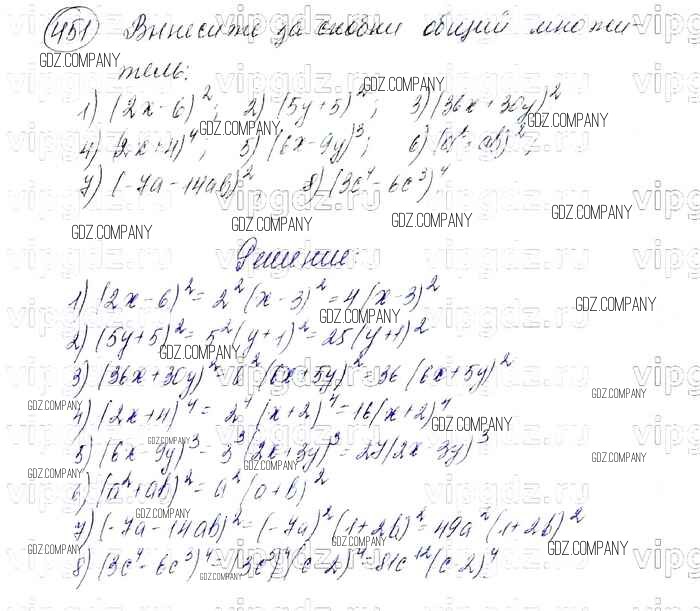 451 Вынесите за скобки общий множи-
тель:
1) (2x-6)²; 2) (5y+5)²; 3) (36x+30y)²
4) (2x+4)⁴; 5) (6x-9y)³; 6) (a²+ab)²;
7) (-7a-14ab)², 8) (3c⁴-6c³)⁴
Решение:
1) (2x-6)²=2²(x-3)²=4(x-3)²
2) (5y+5)²=5²(y+1)²=25(y+1)²
3) (36x+30y)²=6²(6x+5y)²=36(6x+5y)²
4) (2x+4)⁴=2⁴(x+2)⁴=16(x+2)⁴
5) (6x-9y)³=3³(2x+3y)³=27(2x-3y)³
6) (a²+ab)²=a²(a+b)²
7) (-7a-14ab)²=(-7a)²(1+2b)²=49a²(1+2b)²
8) (3c⁴-6c³)⁴=(3c³)⁴(c-2)⁴=81c¹²(c-2)⁴
GDZ.COMPANY
vipgdz.ru